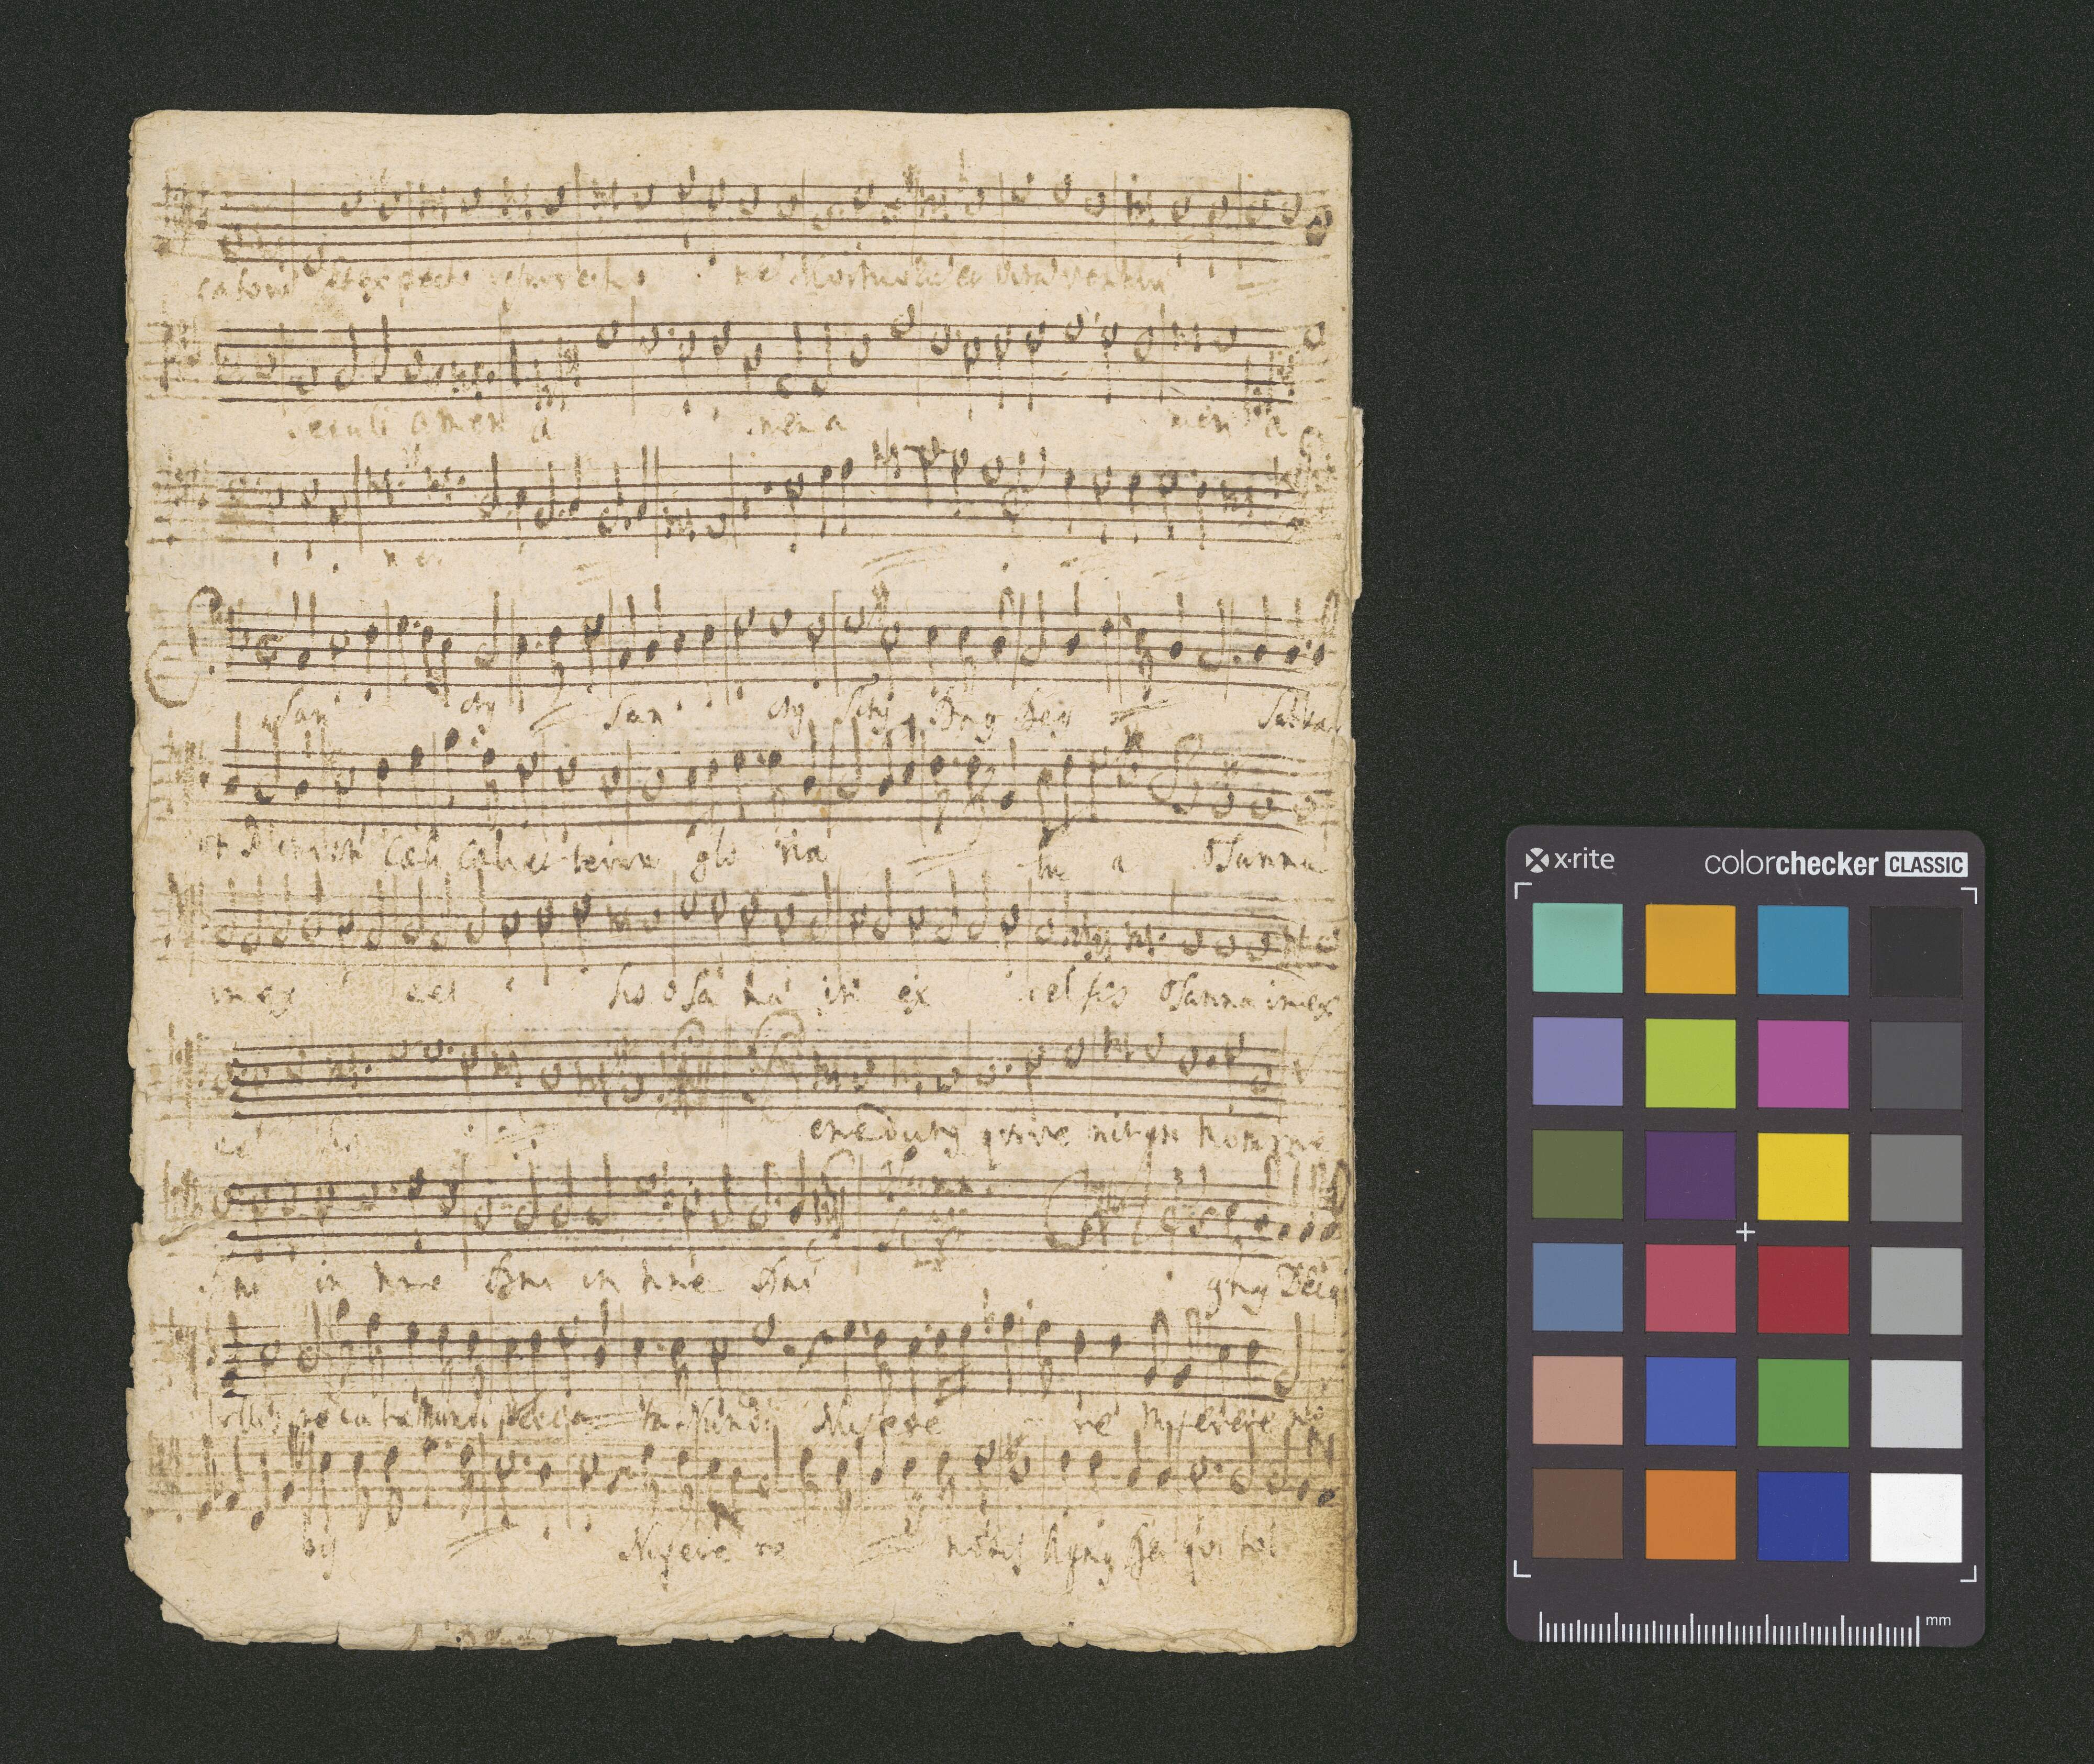 et expecto resurrecti o ne Mortuoru et vita ventu
seculi amen a men a men a
men
San cty San cty Dny Dey Saba
ot Pleni sunt Cæli Cæli et terra glo ria tu a osanna
in ex cel sis osa na in ex cel sis osanna in ex
cel sis enedicty qui ve nit in nomine
Dni in nne Dni in nne Dni agny Dei q
tollis peccata Mundi pecca ta Mundi Misere re Miserere no
by Misere re nobis Agny Dei qui tol
x·rite colorchecker CLASSIC
mm